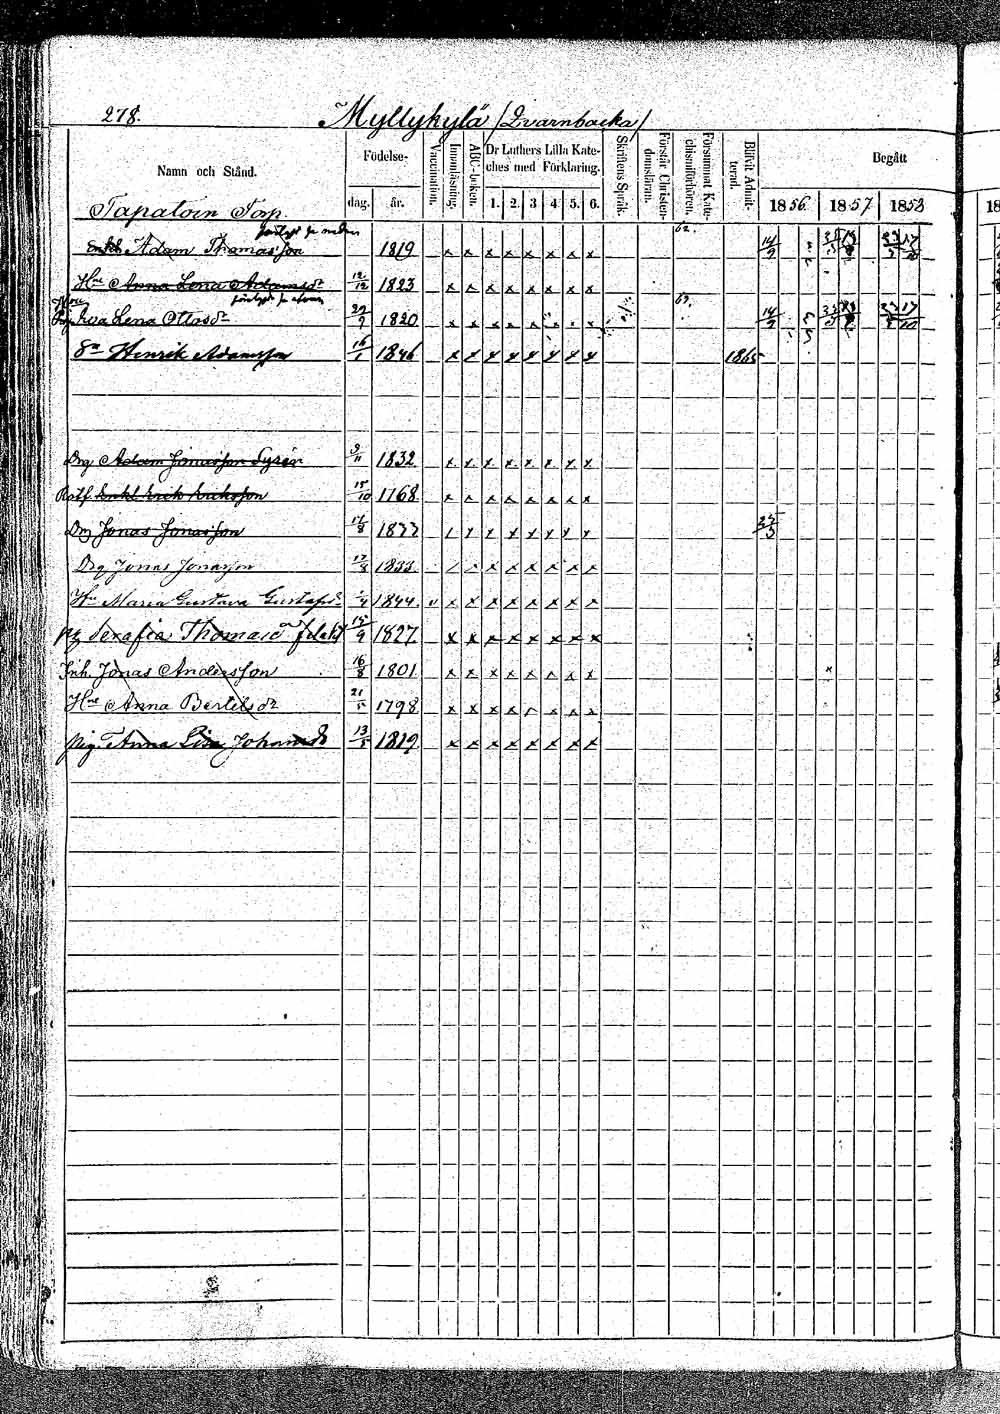 278. Myllykylä /Qvarnbacka/
Namn och Stånd. Födelse- dag. år. Vaccination. Innanläsning. ABC-boken. Dr Luthers Lilla Kate-ches med Förklaring. 1. 2. 3 4. 5. 6. Skriftens Språk. Förstår Christen-domsläran. Försummat Kate-chismiförhören. Blifvit Admit-terad. Begått 1856. 1857 1858 18
Tapaloin Torp.
Enkl Adam Thomasson 1819 x x x x x x x x 62. 14/9
Hu Anna Lena Adamsdr 12/12 1823 x x x x x x x x
Eva Lena Ottosdr 29/9 1820 x x x x x x x x 63. 14/9
Sn Henrik Adamsson 16/1 1846 x x x x x x x x 1865
Drg Adam Jonasson Syrén 9/11 1832 x x x x x x x x
Enkl Erik Eriksson 15/10 1768 x x x x x x x x
Drg Jonas Jonasson 17/8 1833 x x x x x x
Drg Jonas Jonasson 17/8 1833 x x x x x x
Hu Maria Gustava Gustafsdr 1844. v x x x x x x x x
pg Serafia Thomasdr 15/9 1827 x x x x x x x x
Inh. Jonas Andersson 16/8 1801 x x x x x x x x
Hu Anna Bertilsdr 1798 x x x x x x x
pig. Anna Lisa Johansdr 13/5 1819 x x x x x x x x